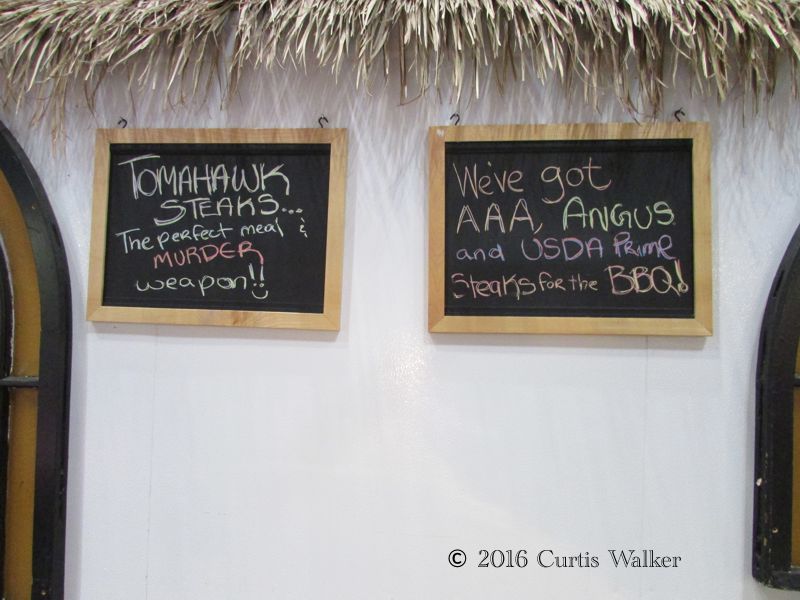 TOMAHAWK
STEAKS...
The perfect meal &
MURDER
weapon!!
We've got
AAA, ANGUS
and USDA PRIME
Steaks for the BBQ!
© 2016 Curtis Walker